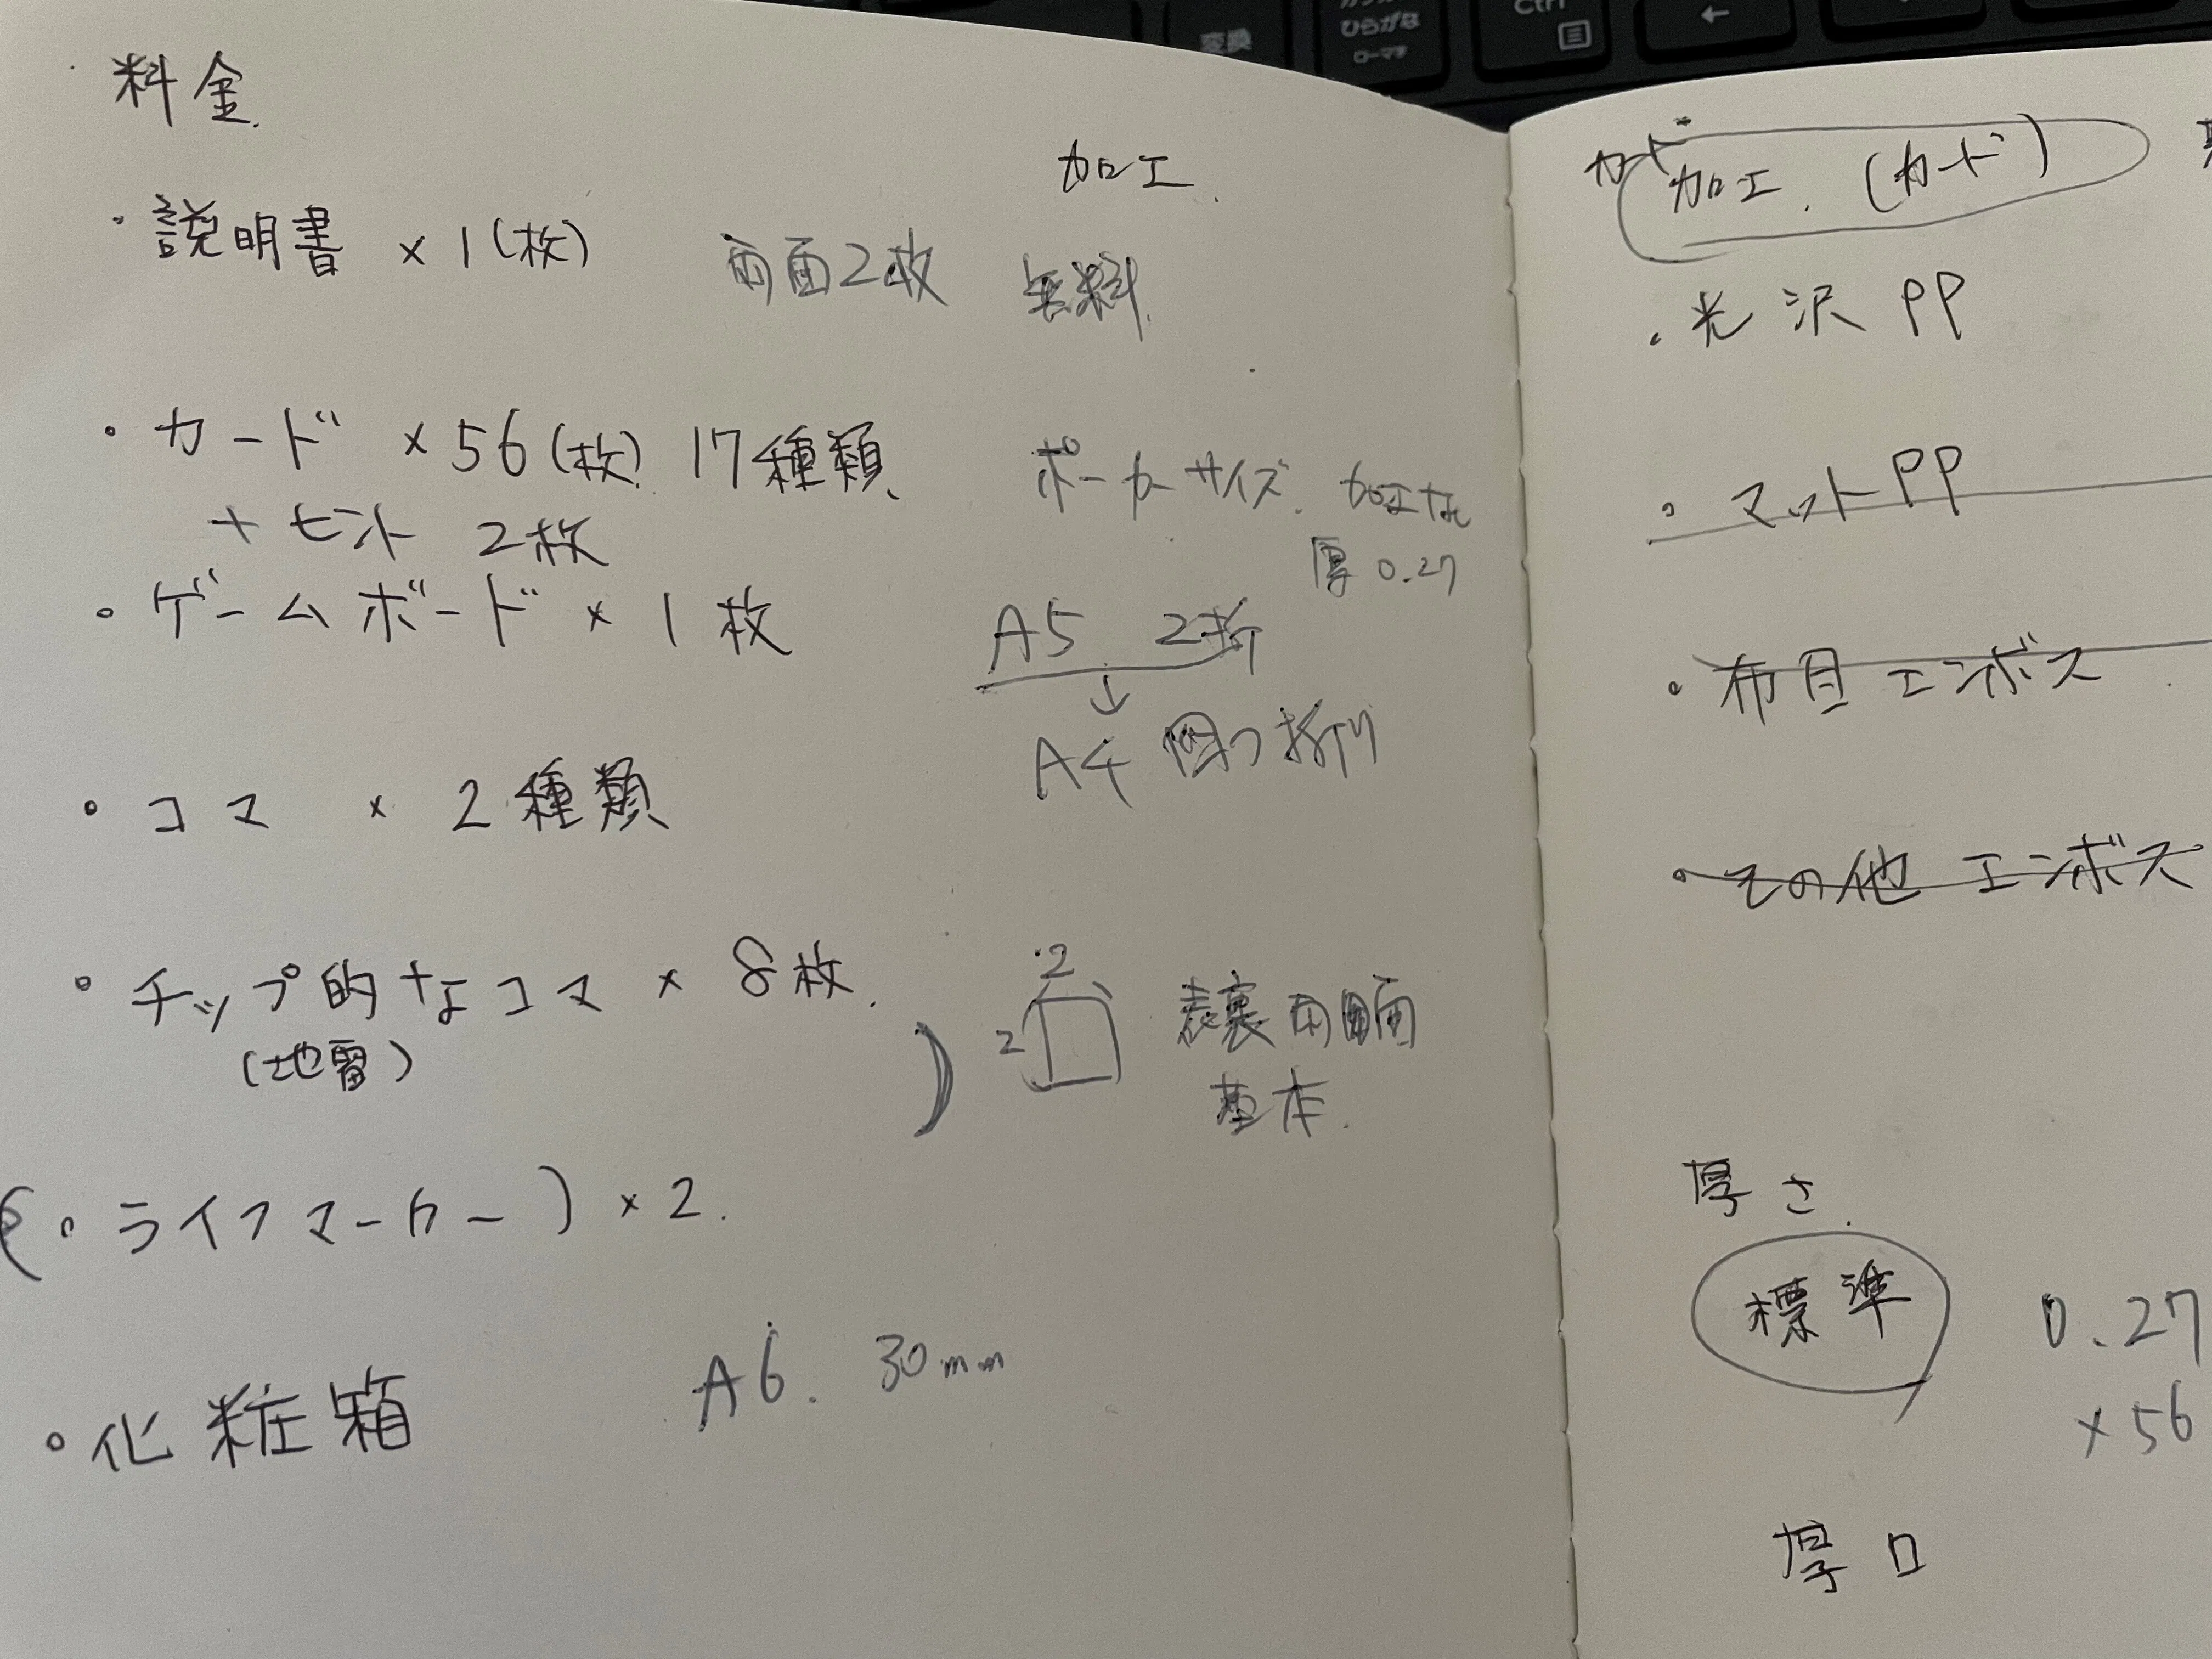 変換
ひらがな
ローマ字
Ctrl
←
料金
加工
・説明書 × 1(枚) 両面2枚 無料
・カード × 56(枚) 17種類 ポーカーサイズ. 加工な
厚0.27
+ ヒント 2枚
・ゲームボード × 1枚 A5 2折
↓
A4 四つ折り
・コマ × 2種類
・チップ的なコマ × 8枚.
(地雷)
2
2
表裏両面
基本.
(・ライフマーカー) × 2.
・化粧箱 A6. 30mm
加工.(カード)
・光沢PP
・マットPP
・布目エンボス
・その他エンボス
厚さ.
標準 0.27
×56
厚口